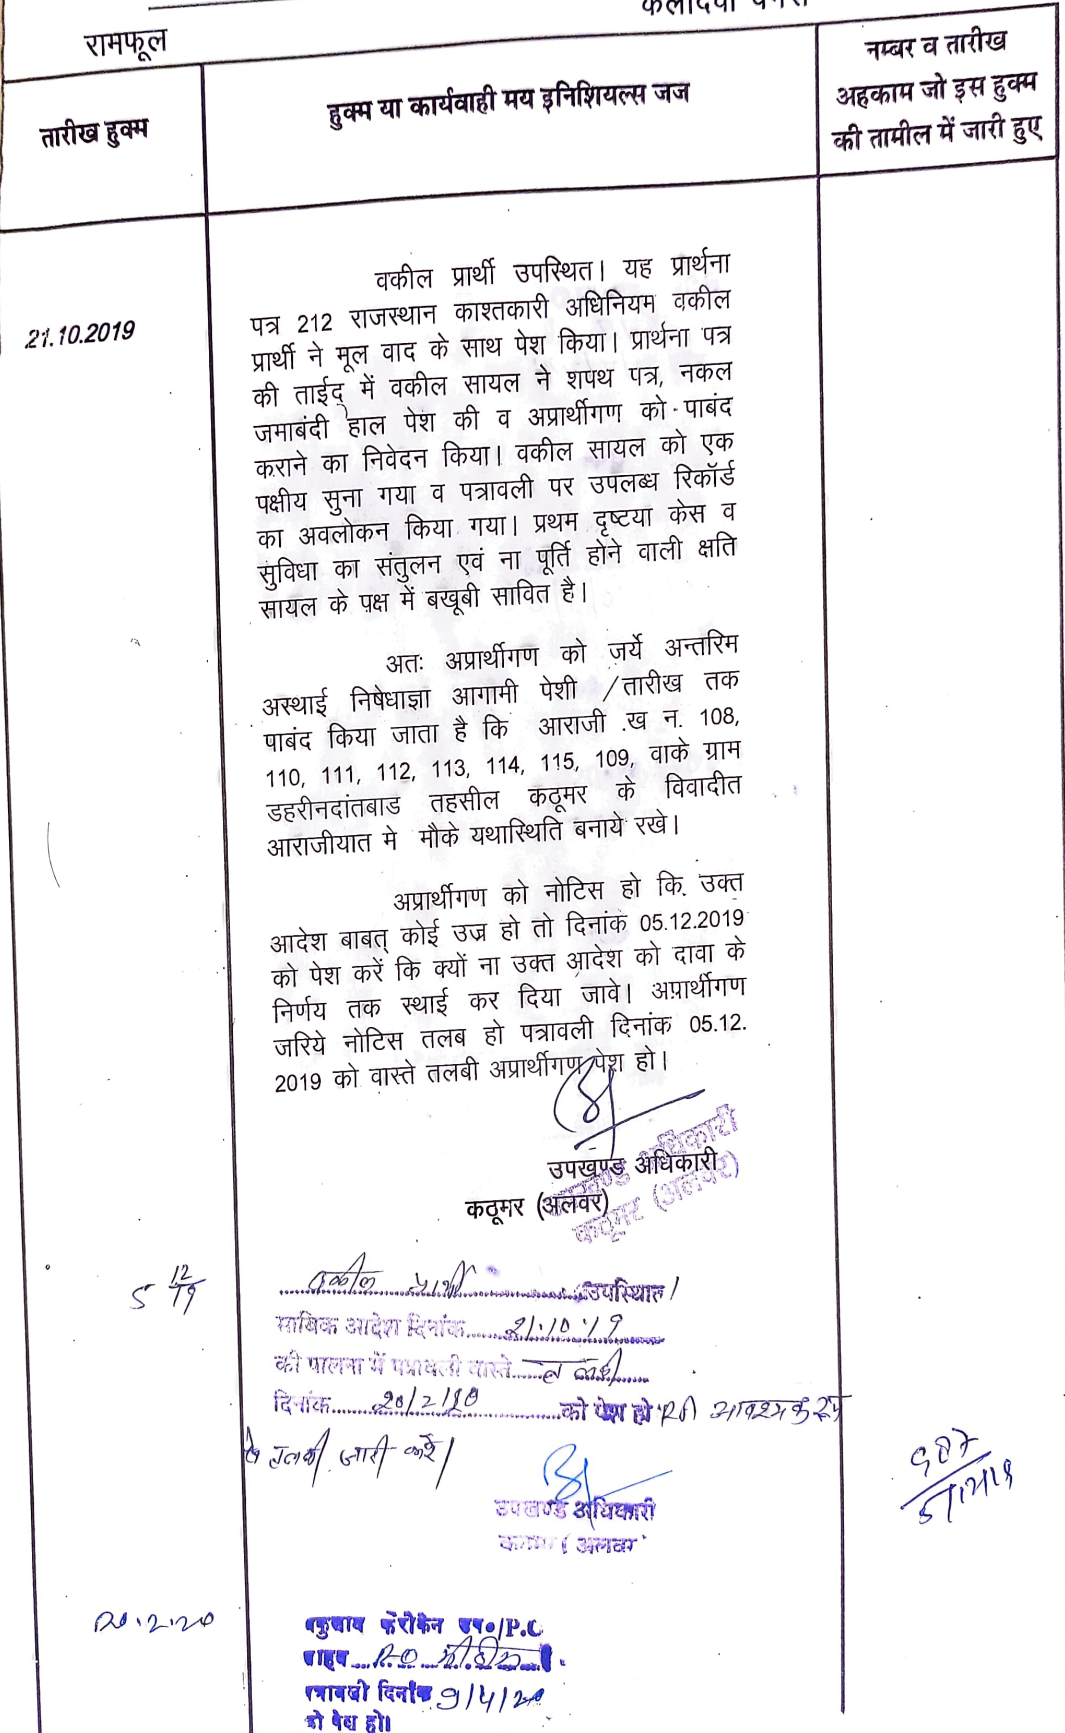 रामफूल
तारीख हुक्म
हुक्म या कार्यवाही मय इनिशियल्स जज
नम्बर व तारीख
अहकाम जो इस हुक्म
की तामील में जारी हुए
21.10.2019
वकील प्रार्थी उपस्थित। यह प्रार्थना
पत्र 212 राजस्थान काश्तकारी अधिनियम वकील
प्रार्थी ने मूल वाद के साथ पेश किया। प्रार्थना पत्र
की ताईद् में वकील सायल ने शपथ पत्र, नकल
जमाबंदी हाल पेश की व अप्रार्थीगण को पाबंद
कराने का निवेदन किया। वकील सायल को एक
पक्षीय सुना गया व पत्रावली पर उपलब्ध रिकॉर्ड
का अवलोकन किया गया। प्रथम दृष्टया केस व
सुविधा का संतुलन एवं ना पूर्ति होने वाली क्षति
सायल के पक्ष में बखूबी सावित है।
अतः अप्रार्थीगण को जर्ये अन्तरिम
अस्थाई निषेधाज्ञा आगामी पेशी /तारीख तक
पाबंद किया जाता है कि आराजी ख न. 108,
110, 111, 112, 113, 114, 115, 109, वाके ग्राम
डहरीनदांतबाड तहसील कठूमर के विवादीत
आराजीयात मे मौके यथास्थिति बनाये रखे।
अप्रार्थीगण को नोटिस हो कि उक्त
आदेश बाबत् कोई उज्र हो तो दिनांक 05.12.2019
को पेश करें कि क्यों ना उक्त आदेश को दावा के
निर्णय तक स्थाई कर दिया जावे। अप्रार्थीगण
जरिये नोटिस तलब हो पत्रावली दिनांक 05.12.
2019 को वास्ते तलबी अप्रार्थीगण पेश हो।
उपखण्ड अधिकारी
कठूमर (अलवर)
अधिकारी
कठूमर (अलवर)
5 12/19
वकील प्रार्थी उपस्थित।
साबिक आदेश दिनांक 21.10.19
की पालना में पत्रावली वास्ते तलबी
दिनांक 20/2/20 को पेश हो
तलबी जारी करें।
उपखण्ड अधिकारी
कठूमर (अलवर
20.2.20
P.C
पत्रावली दिनांक 9/4/20
को पेश हो।